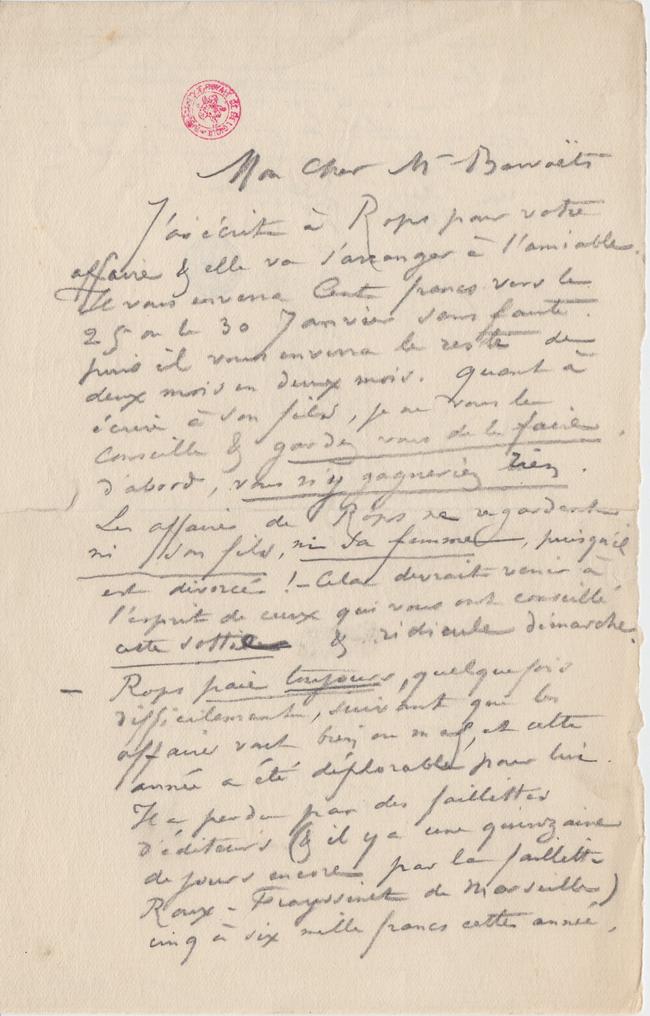 Mon Cher Mr Bawaëts
J'ai écrit à Rops pour votre
affaire & elle va s'arranger à l'amiable.
Il vous enverra Cent francs vers le
25 ou le 30 Janvier sans faute.
puis il vous enverra le reste de
deux mois en deux mois. Quant à
écrire à son fils, je ne vous le
conseille & gardez vous de le faire.
d'abord, vous n'y gagneriez rien.
Les affaires de Rops ne regardent
ni son fils, ni sa femme, puisqu'il
est divorcé ! – Cela devrait venir à
l'esprit de ceux qui vous ont conseillé
cette sotte & ridicule démarche.
– Rops paie toujours, quelquefois
difficilement, suivant que les
affaires vont bien ou mal, et cette
année a été déplorable pour lui.
Il a perdu par des faillites
d'éditeurs (& il y a une quinzaine
de jours encore par la faillite
Roux-Frayssinet de Marseille)
cinq à six mille francs cette année,